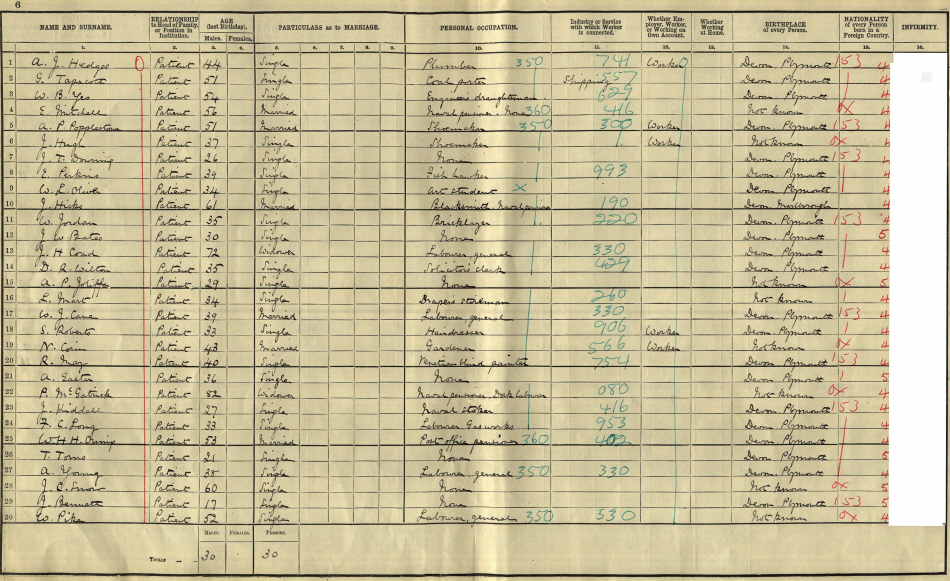 6
NAME AND SURNAME. RELATIONSHIP to Head of Family, or Position in Institution. AGE (last Birthday). PARTICULARS as to MARRIAGE. PERSONAL OCCUPATION. Industry or Service with which Worker is connected. Whether Employer, Worker, or Working on Own Account. Whether Working at Home. BIRTHPLACE of every Person. NATIONALITY of every Person born in a Foreign Country. INFIRMITY.
Males. Females.
1. 2. 3. 4. 5. 6. 7. 8. 9. 10. 11. 12. 13. 14. 15. 16.
1 A. J. Hedges Patient 44 Single Plumber 350 741 Worker Devon. Plymouth 153 4
2 G. Patient 51 Single Coal porter Shipping 557 Devon. Plymouth 4
3 W. B. Yeo Patient 54 Single Engineer's draughtsman 629 Devon. Plymouth 4
4 E. Mitchell Patient 56 Married Naval pensioner. None 360 416 Not known 0x 4
5 A. P. Popplestone Patient 51 Married Shoemaker 350 300 Worker Devon. Plymouth 153 4
6 J. Hugh Patient 37 Single Shoemaker Worker Not known 0x 4
7 J. T. Patient 26 Single None Devon. Plymouth 153 4
8 E. Perkins Patient 39 Single Fish hawker 993 Devon. Plymouth 4
9 W. L. Oliver Patient 34 Single Art student x Devon. Plymouth 4
10 J. Hicks Patient 61 Married Blacksmith. Naval 190 Devon. 4
11 W. Jordan Patient 35 Single Bricklayer 220 Devon. Plymouth 153 4
12 J. W. Bates Patient 30 Single None Devon. Plymouth 5
13 J. H. Coad Patient 72 Widower Labourer, general 330 Devon. Plymouth 4
14 D. R. Wilton Patient 35 Single Solicitor's clerk 429 Devon. Plymouth 4
15 A. P. Jolliffe Patient 29 Single None Not known 0x 5
16 L. Patient 34 Single Draper's storeman 260 Not known 4
17 W. J. Cane Patient 39 Married Labourer, general 330 Devon. Plymouth 153 4
18 S. Roberts Patient 33 Single Hairdresser 906 Worker Devon. Plymouth 4
19 N. Patient 43 Married Gardener 566 Worker Not known 0x 4
20 R. May Patient 40 Single Venetian blind painter 754 Devon. Plymouth 153 4
21 A. Patient 36 Single None Devon. Plymouth 5
22 P. Patient 82 Widower Naval pensioner, Dock labourer 080 Not known 0x 4
23 J. Patient 27 Single Naval stoker 416 Devon. Plymouth 153 4
24 F. C. Long Patient 33 Single Labourer. Gas works 953 Devon. Plymouth 4
25 W. H. H. Patient 53 Married Post office pensioner 360 402 Devon. Plymouth 4
26 T. Toms Patient 21 Single None Devon. Plymouth 5
27 A. Young Patient 38 Single Labourer, general 350 330 Devon. Plymouth 4
28 J. C. Snow Patient 60 Single None Not known 0x 5
29 J. Bennett Patient 17 Single None Devon. Plymouth 153 5
30 W. Pike Patient 52 Single Labourer, general 350 530 Not known 0x 4
MALES. FEMALES. PERSONS.
TOTALS 30 30